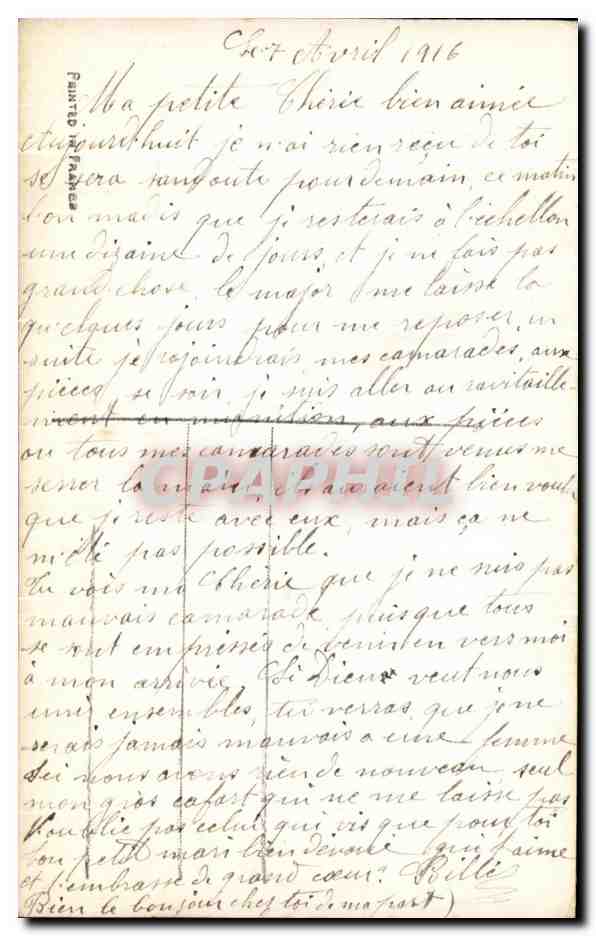 Le 7 Avril 1916
PRINTED IN FRANCE
Ma petite Chérie bien aimée
Aujourd'huit je n'ai rien reçu de toi
se sera sandoute pour demain, ce matin
bon madis que je resterais à l'échellon
une dizaine de jours, et je ne fais pas
grand chose, le major me laisse la
quelques jours pour me reposer, en
suite je rejoinderais mes camarades, aux
pièces, se soir, je suis aller au ravitaille-
ment en munition, aux pièces
ou tous mes camarades sont venus me
serrer la main, ils auraient bien voulu
que je reste avec eux, mais ça ne
m'été pas possible.
Tu vois ma Chérie que je ne suis pas
mauvais camarade, puisque tous
se sont empressés de venir en vers moi
à mon arrivée, Si Dieu veut nous
unir ensembles, tu verras que je ne
serais jamais mauvais a une femme
Ici nous avons rien de nouveau, seul
mon gros cafart qui ne me laisse pas
N'oublie pas celui qui vis que pour toi
ton petit mari bien dévoué qui t'aime
et t'embrasse de grand cœur. Billé
(Bien le bonjour chez toi de ma part)
CPAPHIL